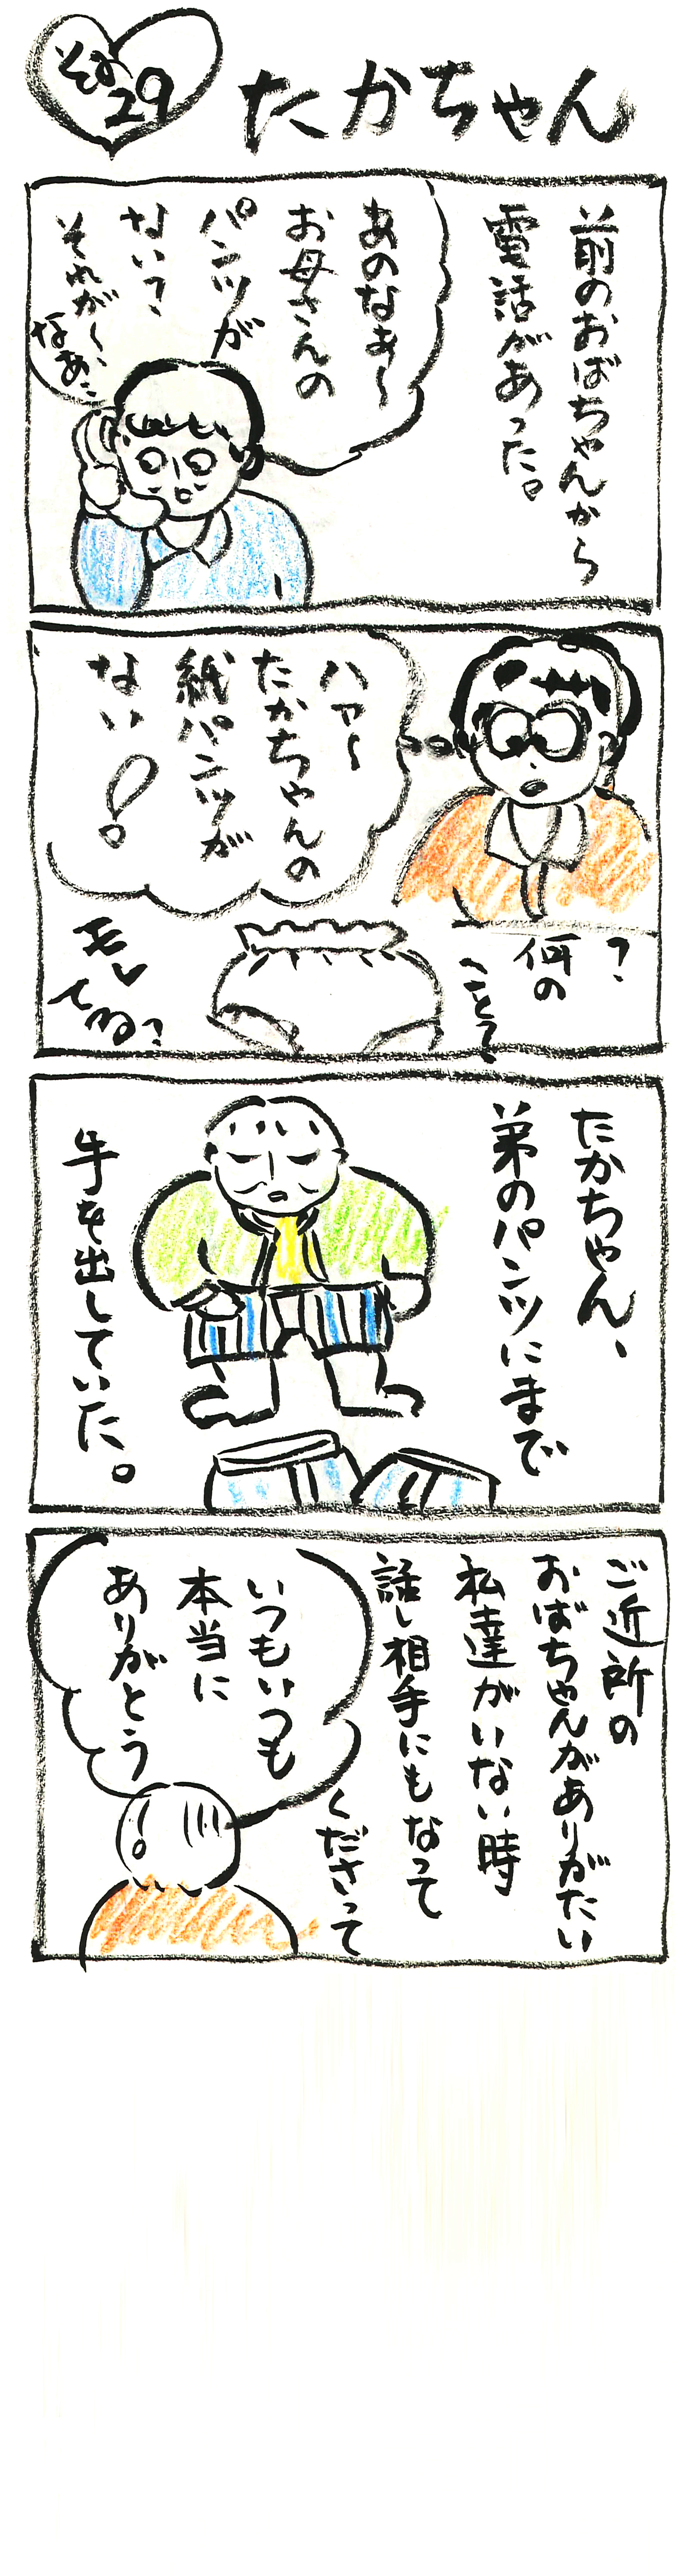 その
29
たかちゃん
前のおばちゃんから
電話があった。
あのなぁ〜
お母さんの
パンツが
ない?
それが〜、
なぁ…
?
何の
こと?
ハァ〜
たかちゃんの
紙パンツが
ない!
モレ
てる?
たかちゃん、
弟のパンツにまで
手を出していた。
ご近所の
おばちゃんがありがたい
私達がいない時
話し相手にもなって
くださって
いつもいつも
本当に
ありがとう